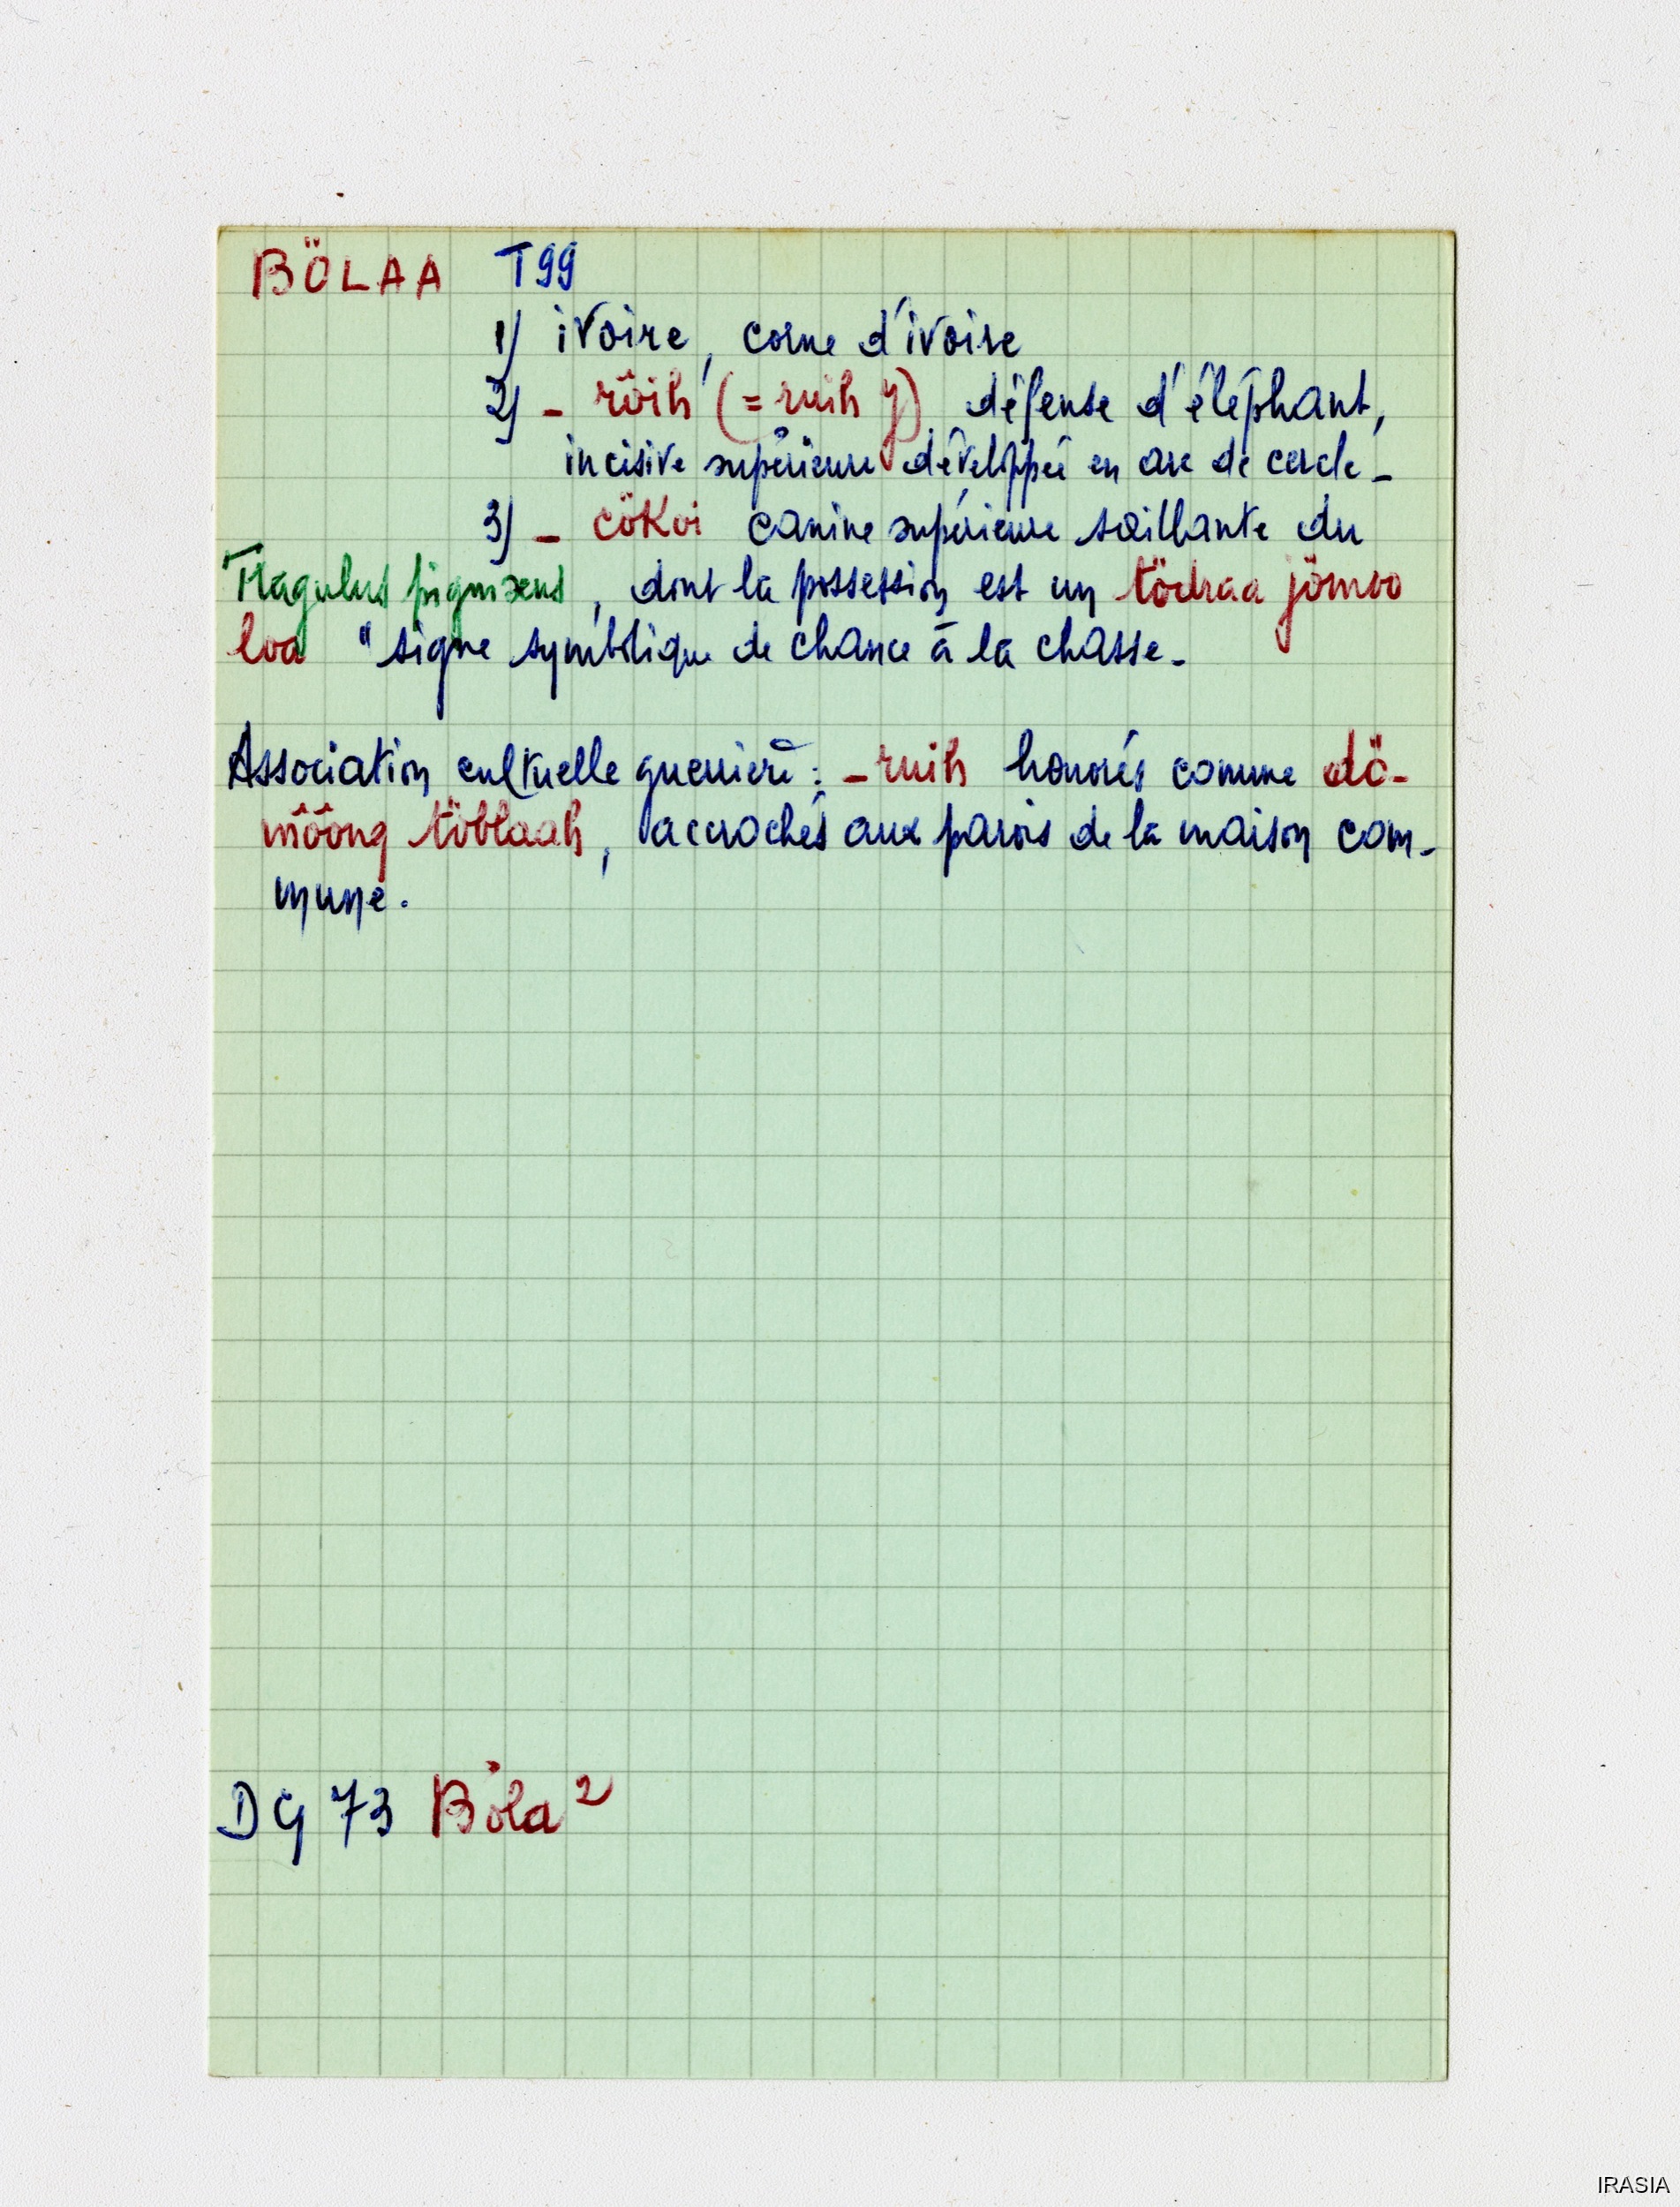 BÖLAA T99
1) ivoire, corne d'ivoire
2) _ röih (= ruih y), défense d'éléphant,
incisive supérieure développée en arc de cercle _
3) _ cökoi canine supérieure saillante du
Tragulus, dont la possession est un tödraa jömoo
loa "signe symbolique de chance à la chasse _
Association cultuelle guerrière : _ ruih honorés comme dö-
môông töblaah, accrochés aux parois de la maison com-
mune.
DG 73 Böla²
IRASIA